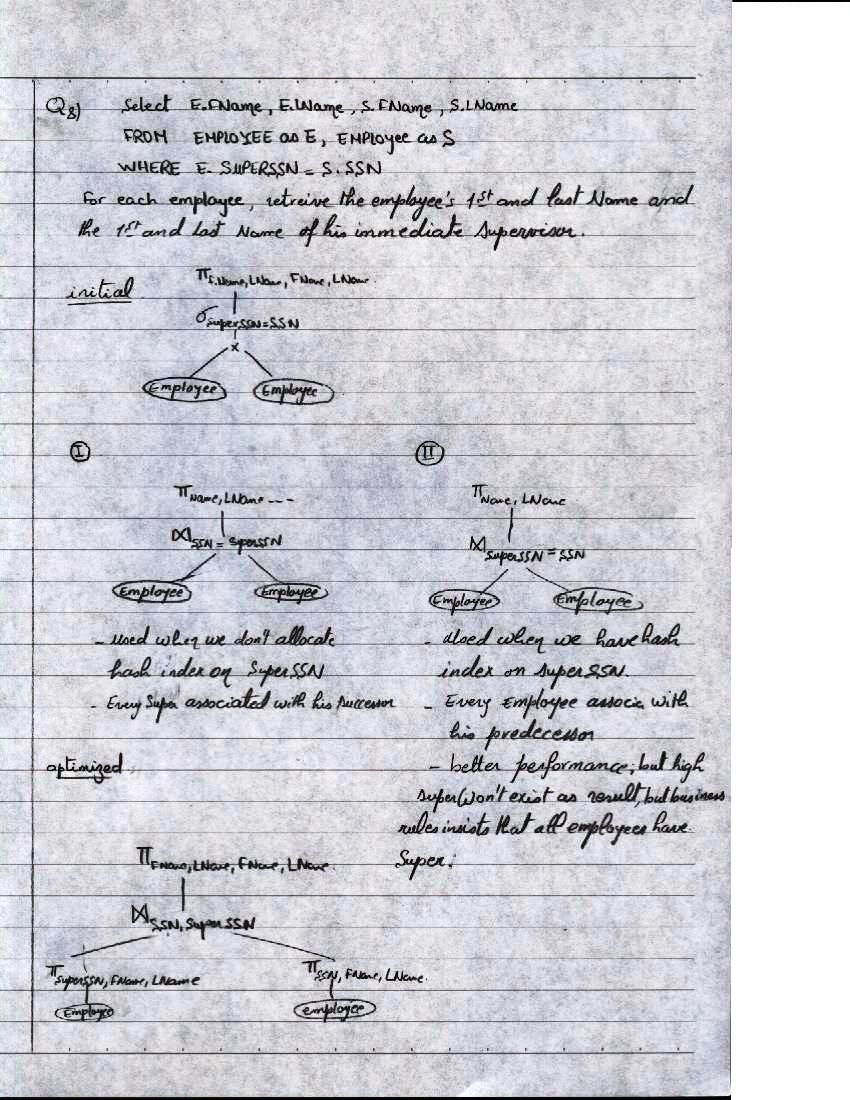 Q8) Select E.FName, E.LName, S.FName, S.LName
FROM EMPLOYEE as E, EMPLOYEE as S
WHERE E. SUPERSSN = S.SSN
For each employee, retreive the employee's 1st and last Name and
the 1st and last Name of his immediate supervisor.
initial
π F.Name, LName, FName, LName
σ SuperSSN=SSN
×
Employee Employee
I
II
π Name, LName ---
π Name, LName
⋈ SSN = SuperSSN
⋈ SuperSSN = SSN
Employee Employee
Employee Employee
- used when we don't allocate
hash index on SuperSSN
- Every Super associated with his successor
- Used when we have hash
index on superSSN.
- Every Employee associa with
his predecessor
- better performance; but high
super won't exist as result, but business
rules insists that all employees have
Super.
optimized
π FName, LName, FName, LName
⋈ SSN, SuperSSN
π SuperSSN, FName, LName
π SSN, FName, LName
Employee
employee